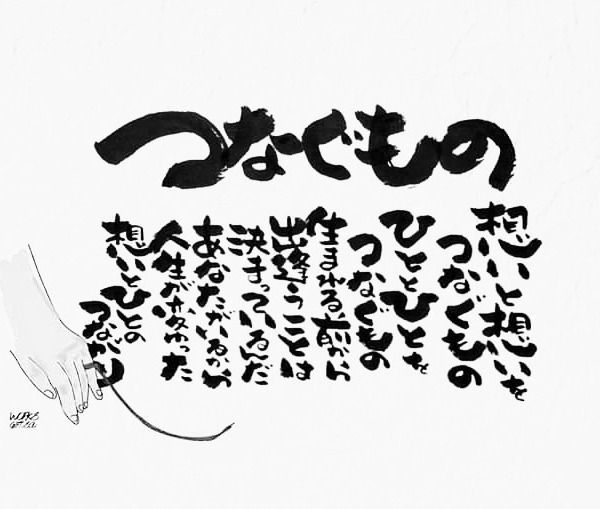 つなぐもの
想いと想いを
つなぐもの
ひととひとを
つなぐもの
生まれる前から
出逢うことは
決まっているんだ
あなたがいるから
人生が変わった
想いとひとの
つながり
WORKS